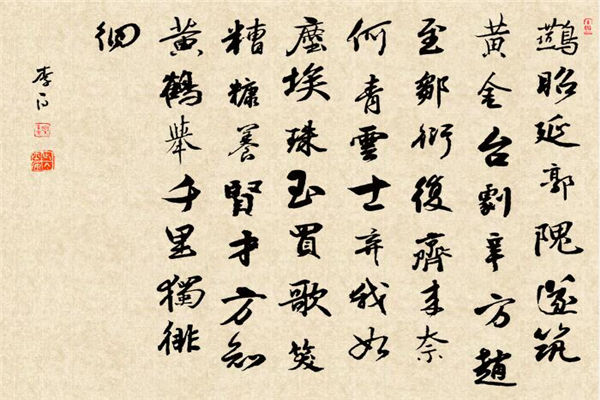 鷰昭延郭隗遂筑
黄金台劇辛方趙
至鄒衍復齊来奈
何青雲士弃我如
塵埃珠玉買歌笑
糟糠養賢才方知
黄鶴舉千里獨徘
徊
李白